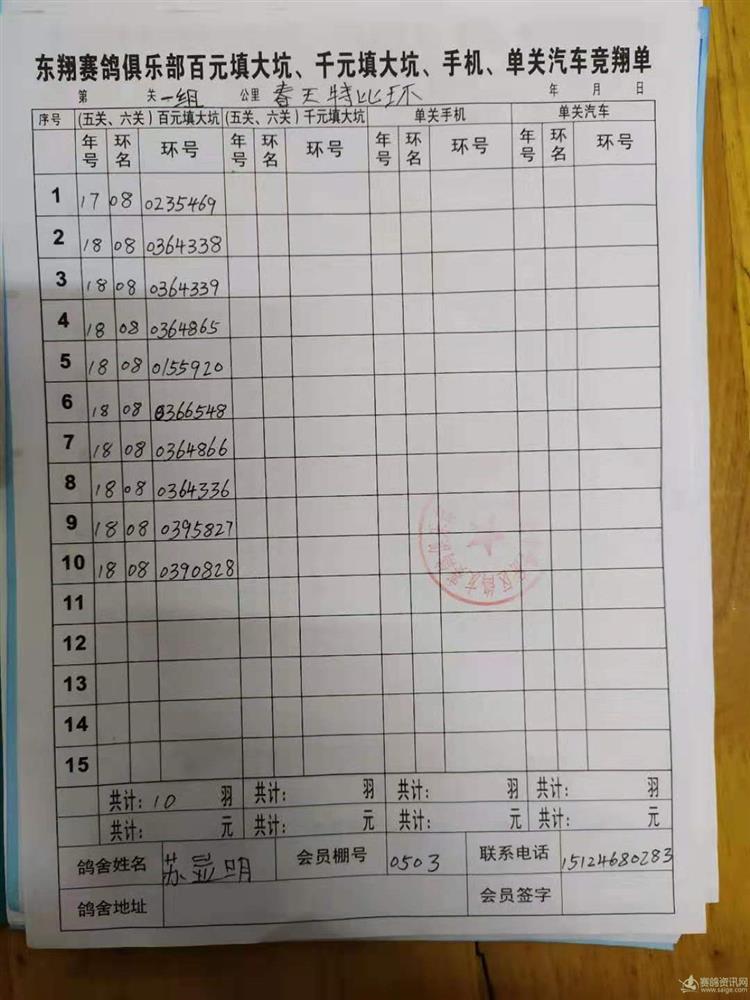 东翔赛鸽俱乐部百元填大坑、千元填大坑、手机、单关汽车竞翔单
第 关 一组 公里 春天特比环 年 月 日
序号 (五关、六关)百元填大坑 (五关、六关)千元填大坑 单关手机 单关汽车
年号 环名 环号 年号 环名 环号 年号 环名 环号 年号 环名 环号
1 17 08 0235469
2 18 08 0364338
3 18 08 0364339
4 18 08 0364865
5 18 08 0155920
6 18 08 0366548
7 18 08 0364866
8 18 08 0364336
9 18 08 0395827
10 18 08 0390828
11
12
13
14
15
共计:10 羽 共计: 羽 共计: 羽 共计: 羽
共计: 元 共计: 元 共计: 元 共计: 元
鸽舍姓名 苏 明 会员棚号 0503 联系电话 15124680283
鸽舍地址 会员签字
赛鸽资讯网
www.saige.com